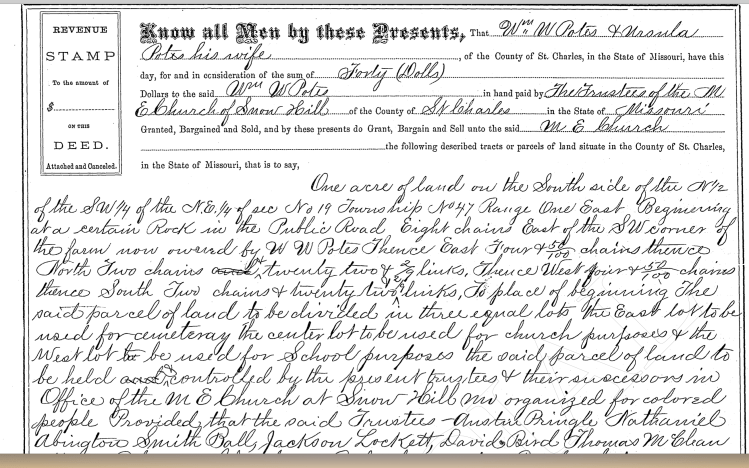 REVENUE
STAMP
To the amount of
$
ON THIS
DEED.
Attached and Canceled.
Know all Men by these Presents, That Wm W Potes & Ursula
Potes his wife, of the County of St. Charles, in the State of Missouri, have this
day, for and in consideration of the sum of Forty (Dolls)
Dollars to the said Wm W Potes in hand paid by The Trustees of the M
E Church of Snow Hill of the County of St Charles in the State of Missouri
Granted, Bargained and Sold, and by these presents do Grant, Bargain and Sell unto the said M. E. Church
the following described tracts or parcels of land situate in the County of St. Charles,
in the State of Missouri, that is to say,
One acre of land on the South side of the N 1/2
of the S W 1/4 of the N. E. 1/4 of sec No 19 Township No 47 Range One East Beginning
at a certain Rock in the Public Road, Eight chains East of the S W corner of
the farm now owned by W W Potes Thence East Four & 50/100 chains thence
North Two chains twenty two & 2/9 links, Thence West four & 50/100 chains
thence South Two chains & twenty two 2/9 links, To place of beginning The
said parcel of land to be divided in three equal lots the East lot to be
used for cemeteray the center lot to be used for church purposes & the
West lot to be used for School purposes the said parcel of land to
be held & controlled by the present trustees & their successors in
Office of the M E Church at Snow Hill Mo organized for colored
people Provided, that the said Trustees - Austin Pringle Nathaniel
Abington Smith Ball, Jackson Lockett, David Bird Thomas McClean